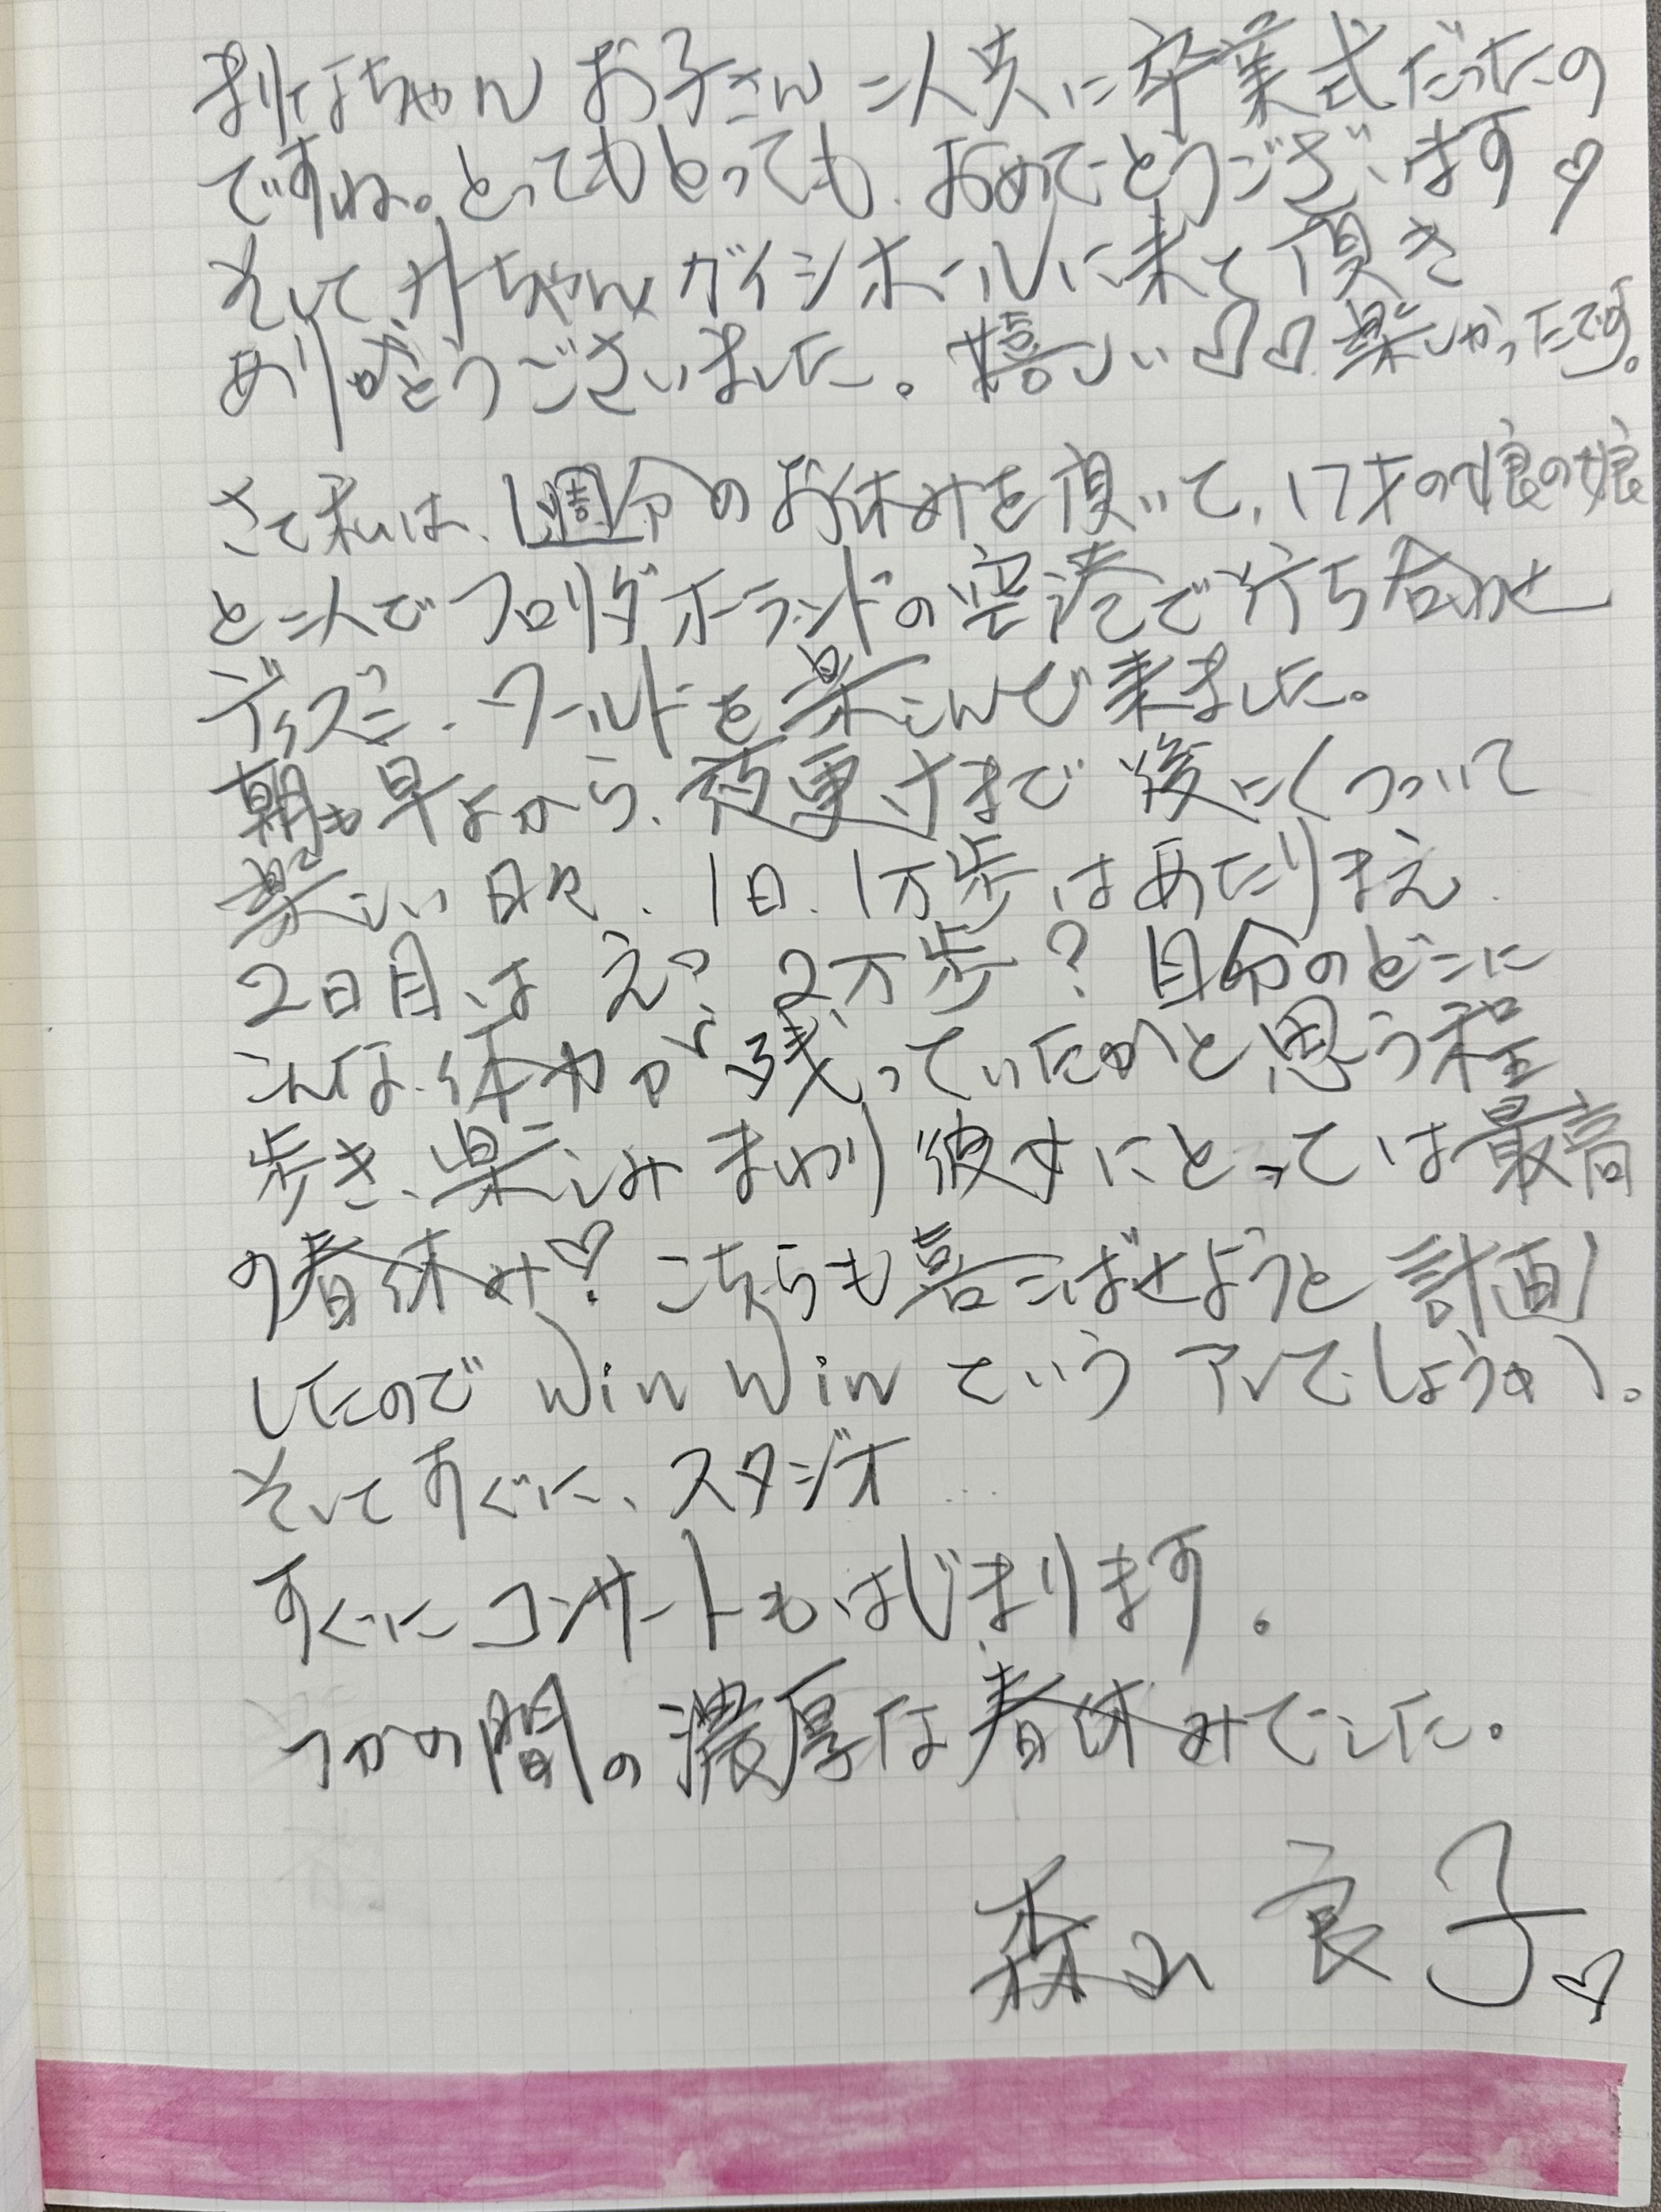 まりなちゃん お子さん 二人共に卒業式だったの
ですね。とってもとっても、おめでとうございます♡
そして、ナーちゃん ガイシホールに来て頂き
ありがとうございました。嬉しい♡♡ 楽しかったです。
さて私は、1週分のお休みを頂いて、17才の娘の娘
と二人でフロリダ オーランドの空港で打ち合わせ
ディズニーワールドを楽しんで来ました。
朝も早よから、夜更けまで 後にくっついて
楽しい日々、1日、1万歩はあたりまえ、
2日目は えっ、2万歩？ 自分のどこに
こんな体力が残っていたかと思う程
歩き、楽しみまわり 彼女にとっては最高
の春休み♡？ こちらも喜こばせようと計画
したので Win Win という アレでしょうか。
そしてすぐに、スタジオ…
すぐにコンサートもはじまります。
つかの間の濃厚な春休みでした。
森山良子♡